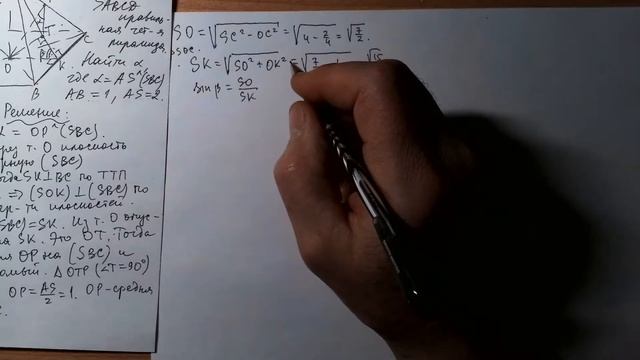 >ABCD
правиль-
ная чет-я
пирамида.
Найти α
где α = AS^(SBC)
AB = 1, AS = 2.
O
K
B
Решение:
= OP^(SBC).
т. O плоскость
(SBC)
SK⊥BC по ТТП
⇒ (SOK)⊥(SBC) по
плоскостей.
SBC) = SK. Из т. O опус-
на SK. Это OT. Тогда
OP на (SBC) и
ΔOTP (∠T=90°)
OP = AS/2 = 1. OP - средняя
SO = √(SC² - OC²) = √(4 - 2/4) = √(7/2)
SK = √(SO² + OK²) = √(7
sin β = SO/SK